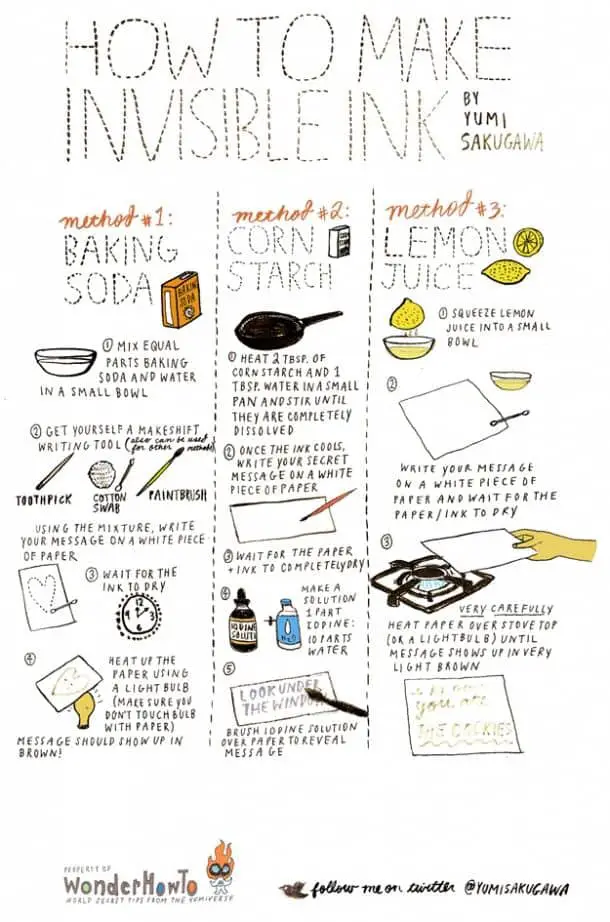 HOW TO MAKE
INVISIBLE INK
BY
YUMI
SAKUGAWA
method #1:
BAKING
SODA
BAKING
SODA
① MIX EQUAL
PARTS BAKING
SODA AND WATER
IN A SMALL BOWL
② GET YOURSELF A MAKESHIFT
WRITING TOOL (also can be used
for other methods)
TOOTHPICK
COTTON
SWAB
PAINTBRUSH
USING THE MIXTURE, WRITE
YOUR MESSAGE ON A WHITE PIECE
OF PAPER
③ WAIT FOR THE
INK TO DRY
12
3
6
9
④ HEAT UP THE
PAPER USING
A LIGHT BULB
(MAKE SURE YOU
DON'T TOUCH BULB
WITH PAPER)
MESSAGE SHOULD SHOW UP IN
BROWN!
method #2:
CORN
STARCH
CORN
STARCH
① HEAT 2 TBSP. OF
CORNSTARCH AND 1
TBSP. WATER IN A SMALL
PAN AND STIR UNTIL
THEY ARE COMPLETELY
DISSOLVED
② ONCE THE INK COOLS,
WRITE YOUR SECRET
MESSAGE ON A WHITE
PIECE OF PAPER
③ WAIT FOR THE PAPER
+ INK TO COMPLETELY DRY
④ MAKE A
SOLUTION
1 PART
IODINE:
10 PARTS
WATER
IODINE
SOLUTION
+
H2O
⑤
LOOK UNDER
THE WINDOW
BRUSH IODINE SOLUTION
OVER PAPER TO REVEAL
MESSAGE
method #3:
LEMON
JUICE
① SQUEEZE LEMON
JUICE INTO A SMALL
BOWL
②
WRITE YOUR MESSAGE
ON A WHITE PIECE OF
PAPER AND WAIT FOR THE
PAPER/INK TO DRY
③
VERY CAREFULLY
HEAT PAPER OVER STOVE TOP
(OR A LIGHTBULB) UNTIL
MESSAGE SHOWS UP IN VERY
LIGHT BROWN
you ate
THE COOKIES
PROPERTY OF
WonderHowTo
WORLD SECRET TIPS FROM THE YUMIVERSE
follow me on twitter @YUMISAKUGAWA